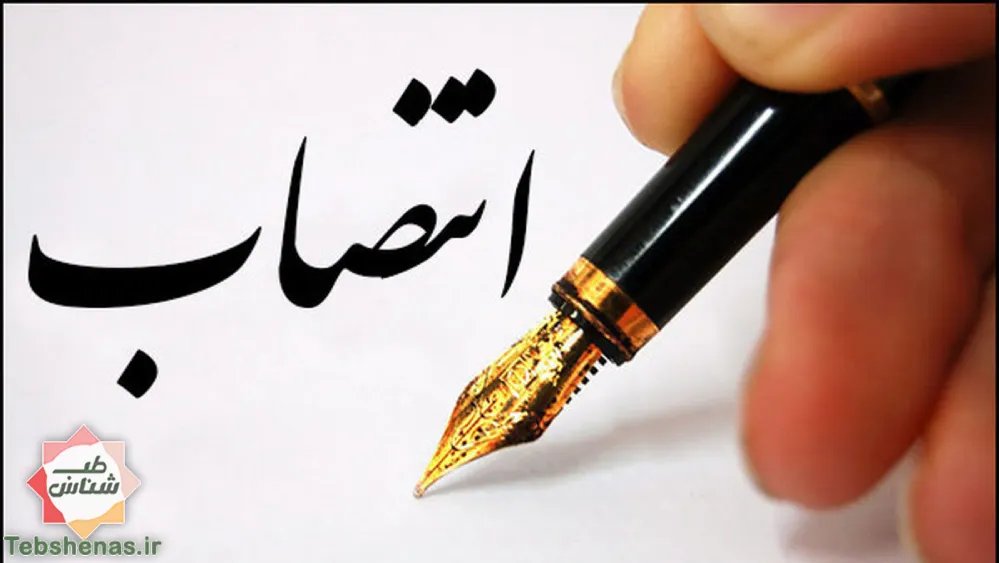 انتصاب
طب
شناس
Tebshenas.ir